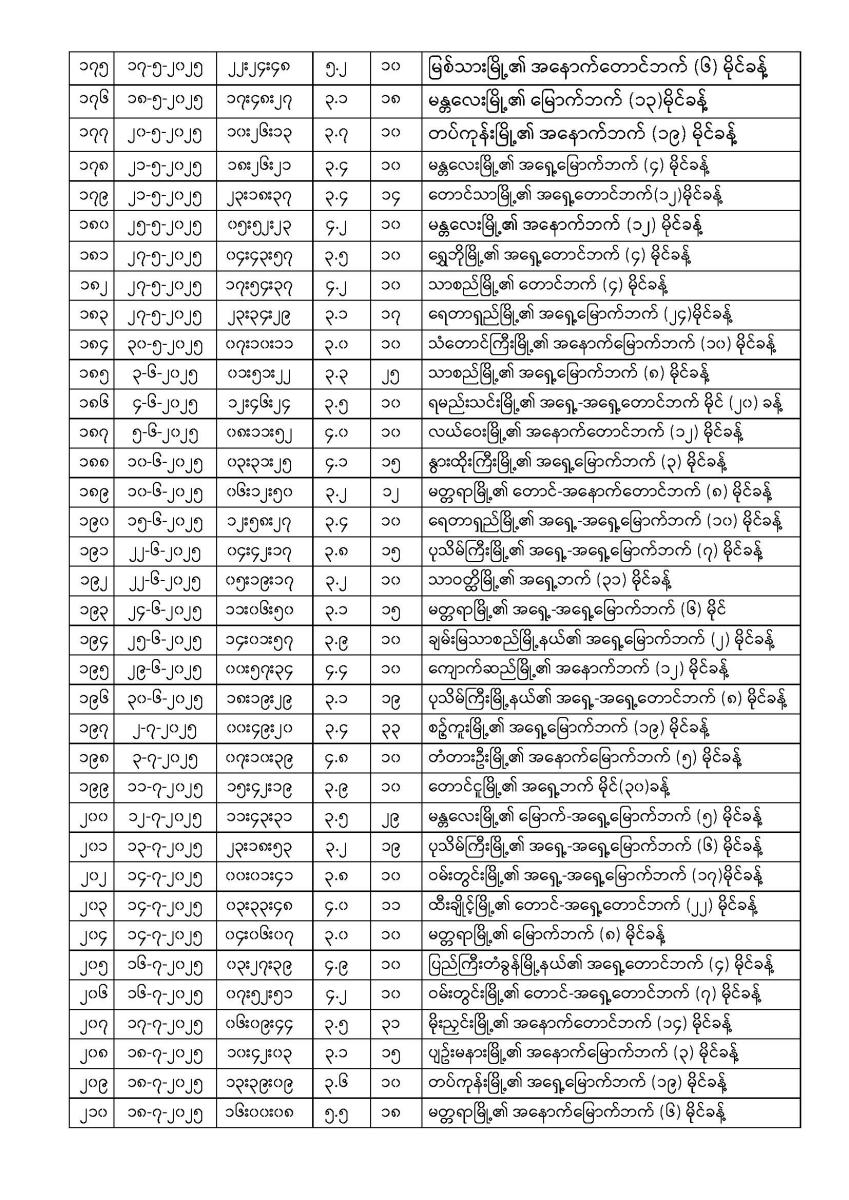 ၁၇၅ ၁၇-၅-၂၀၂၅ ၂၂း၂၄း၄၈ ၅.၂ ၁၀ မြစ်သားမြို့၏ အနောက်တောင်ဘက် (၆) မိုင်ခန့်
၁၇၆ ၁၈-၅-၂၀၂၅ ၁၇း၄၈း၂၇ ၃.၁ ၁၈ မန္တလေးမြို့၏ မြောက်ဘက် (၁၃)မိုင်ခန့်
၁၇၇ ၂၀-၅-၂၀၂၅ ၁၀း၂၆း၁၃ ၃.၇ ၁၀ တပ်ကုန်းမြို့၏ အနောက်ဘက် (၁၉) မိုင်ခန့်
၁၇၈ ၂၁-၅-၂၀၂၅ ၁၈း၂၆း၂၁ ၃.၄ ၁၀ မန္တလေးမြို့၏ အရှေ့မြောက်ဘက် (၄) မိုင်ခန့်
၁၇၉ ၂၁-၅-၂၀၂၅ ၂၃း၁၈း၃၇ ၃.၄ ၁၄ တောင်သာမြို့၏ အရှေ့တောင်ဘက်(၁၂)မိုင်ခန့်
၁၈၀ ၂၅-၅-၂၀၂၅ ၀၅း၅၂း၂၃ ၄.၂ ၁၀ မန္တလေးမြို့၏ အနောက်ဘက် (၁၂) မိုင်ခန့်
၁၈၁ ၂၇-၅-၂၀၂၅ ၀၄း၄၃း၅၇ ၃.၅ ၁၀ ရွှေဘိုမြို့၏ အရှေ့တောင်ဘက် (၄) မိုင်ခန့်
၁၈၂ ၂၇-၅-၂၀၂၅ ၁၇း၅၄း၃၇ ၄.၂ ၁၀ သာစည်မြို့၏ တောင်ဘက် (၄) မိုင်ခန့်
၁၈၃ ၂၇-၅-၂၀၂၅ ၂၃း၃၄း၂၉ ၃.၁ ၁၇ ရေတာရှည်မြို့၏ အရှေ့မြောက်ဘက် (၂၄)မိုင်ခန့်
၁၈၄ ၃၀-၅-၂၀၂၅ ၀၇း၁၀း၁၁ ၃.၀ ၁၀ သံတောင်ကြီးမြို့၏ အနောက်မြောက်ဘက် (၁၀) မိုင်ခန့်
၁၈၅ ၃-၆-၂၀၂၅ ၀၁း၅၁း၂၂ ၃.၃ ၂၅ သာစည်မြို့၏ အရှေ့မြောက်ဘက် (၈) မိုင်ခန့်
၁၈၆ ၄-၆-၂၀၂၅ ၁၂း၄၆း၂၄ ၃.၅ ၁၀ ရမည်းသင်းမြို့၏ အရှေ့-အရှေ့တောင်ဘက် မိုင် (၂၀) ခန့်
၁၈၇ ၅-၆-၂၀၂၅ ၀၈း၁၁း၅၂ ၄.၀ ၁၀ လယ်ဝေးမြို့၏ အနောက်တောင်ဘက် (၁၂) မိုင်ခန့်
၁၈၈ ၁၀-၆-၂၀၂၅ ၀၃း၃၁း၂၅ ၄.၁ ၁၅ နွားထိုးကြီးမြို့၏ အရှေ့မြောက်ဘက် (၃) မိုင်ခန့်
၁၈၉ ၁၀-၆-၂၀၂၅ ၀၆း၁၂း၅၀ ၃.၂ ၁၂ မတ္တရာမြို့၏ တောင်-အနောက်တောင်ဘက် (၈) မိုင်ခန့်
၁၉၀ ၁၅-၆-၂၀၂၅ ၁၂း၅၈း၂၇ ၃.၄ ၁၀ ရေတာရှည်မြို့၏ အရှေ့-အရှေ့မြောက်ဘက် (၁၀) မိုင်ခန့်
၁၉၁ ၂၂-၆-၂၀၂၅ ၀၄း၄၂း၁၇ ၃.၈ ၁၅ ပုသိမ်ကြီးမြို့၏ အရှေ့-အရှေ့မြောက်ဘက် (၇) မိုင်ခန့်
၁၉၂ ၂၂-၆-၂၀၂၅ ၀၅း၁၉း၁၇ ၃.၂ ၁၀ သာဝတ္ထိမြို့၏ အရှေ့ဘက် (၃၁) မိုင်ခန့်
၁၉၃ ၂၄-၆-၂၀၂၅ ၁၁း၀၆း၅၀ ၃.၁ ၁၅ မတ္တရာမြို့၏ အရှေ့-အရှေ့မြောက်ဘက် (၆) မိုင်
၁၉၄ ၂၅-၆-၂၀၂၅ ၁၄း၀၁း၅၇ ၃.၉ ၁၀ ချမ်းမြသာစည်မြို့နယ်၏ အရှေ့မြောက်ဘက် (၂) မိုင်ခန့်
၁၉၅ ၂၉-၆-၂၀၂၅ ၀၀း၅၇း၃၄ ၄.၄ ၁၀ ကျောက်ဆည်မြို့၏ အနောက်ဘက် (၁၂) မိုင်ခန့်
၁၉၆ ၃၀-၆-၂၀၂၅ ၁၈း၁၉း၂၉ ၃.၁ ၁၉ ပုသိမ်ကြီးမြို့နယ်၏ အရှေ့-အရှေ့တောင်ဘက် (၈) မိုင်ခန့်
၁၉၇ ၂-၇-၂၀၂၅ ၀၀း၄၉း၂၀ ၃.၄ ၃၃ စဉ့်ကူးမြို့၏ အရှေ့မြောက်ဘက် (၁၉) မိုင်ခန့်
၁၉၈ ၃-၇-၂၀၂၅ ၀၇း၁၀း၃၉ ၄.၈ ၁၀ တံတားဦးမြို့၏ အနောက်မြောက်ဘက် (၅) မိုင်ခန့်
၁၉၉ ၁၁-၇-၂၀၂၅ ၁၅း၄၂း၁၉ ၃.၉ ၁၀ တောင်ငူမြို့၏ အရှေ့ဘက် မိုင်(၃၀)ခန့်
၂၀၀ ၁၂-၇-၂၀၂၅ ၁၁း၄၃း၃၁ ၃.၅ ၂၉ မန္တလေးမြို့၏ မြောက်-အရှေ့မြောက်ဘက် (၅) မိုင်ခန့်
၂၀၁ ၁၃-၇-၂၀၂၅ ၂၃း၁၈း၅၃ ၃.၂ ၁၉ ပုသိမ်ကြီးမြို့၏ အရှေ့-အရှေ့မြောက်ဘက် (၆) မိုင်ခန့်
၂၀၂ ၁၄-၇-၂၀၂၅ ၀၀း၀၁း၄၁ ၃.၈ ၁၀ ဝမ်းတွင်းမြို့၏ အရှေ့-အရှေ့မြောက်ဘက် (၁၇)မိုင်ခန့်
၂၀၃ ၁၄-၇-၂၀၂၅ ၀၃း၃၃း၄၈ ၄.၀ ၁၁ ထီးချိုင့်မြို့၏ တောင်-အရှေ့တောင်ဘက် (၂၂) မိုင်ခန့်
၂၀၄ ၁၄-၇-၂၀၂၅ ၀၄း၀၆း၀၇ ၃.၀ ၁၀ မတ္တရာမြို့၏ မြောက်ဘက် (၈) မိုင်ခန့်
၂၀၅ ၁၆-၇-၂၀၂၅ ၀၃း၂၇း၃၉ ၄.၉ ၁၀ ပြည်ကြီးတံခွန်မြို့နယ်၏ အရှေ့တောင်ဘက် (၄) မိုင်ခန့်
၂၀၆ ၁၆-၇-၂၀၂၅ ၀၇း၅၂း၅၁ ၄.၂ ၁၀ ဝမ်းတွင်းမြို့၏ တောင်-အရှေ့တောင်ဘက် (၇) မိုင်ခန့်
၂၀၇ ၁၇-၇-၂၀၂၅ ၀၆း၀၉း၄၄ ၃.၅ ၃၁ မိုးညှင်းမြို့၏ အနောက်တောင်ဘက် (၁၄) မိုင်ခန့်
၂၀၈ ၁၈-၇-၂၀၂၅ ၁၀း၄၂း၀၃ ၃.၁ ၁၅ ပျဉ်းမနားမြို့၏ အနောက်မြောက်ဘက် (၃) မိုင်ခန့်
၂၀၉ ၁၈-၇-၂၀၂၅ ၁၃း၃၉း၀၉ ၃.၆ ၁၀ တပ်ကုန်းမြို့၏ အရှေ့မြောက်ဘက် (၁၉) မိုင်ခန့်
၂၁၀ ၁၈-၇-၂၀၂၅ ၁၆း၀၀း၀၈ ၅.၅ ၁၈ မတ္တရာမြို့၏ အနောက်မြောက်ဘက် (၆) မိုင်ခန့်